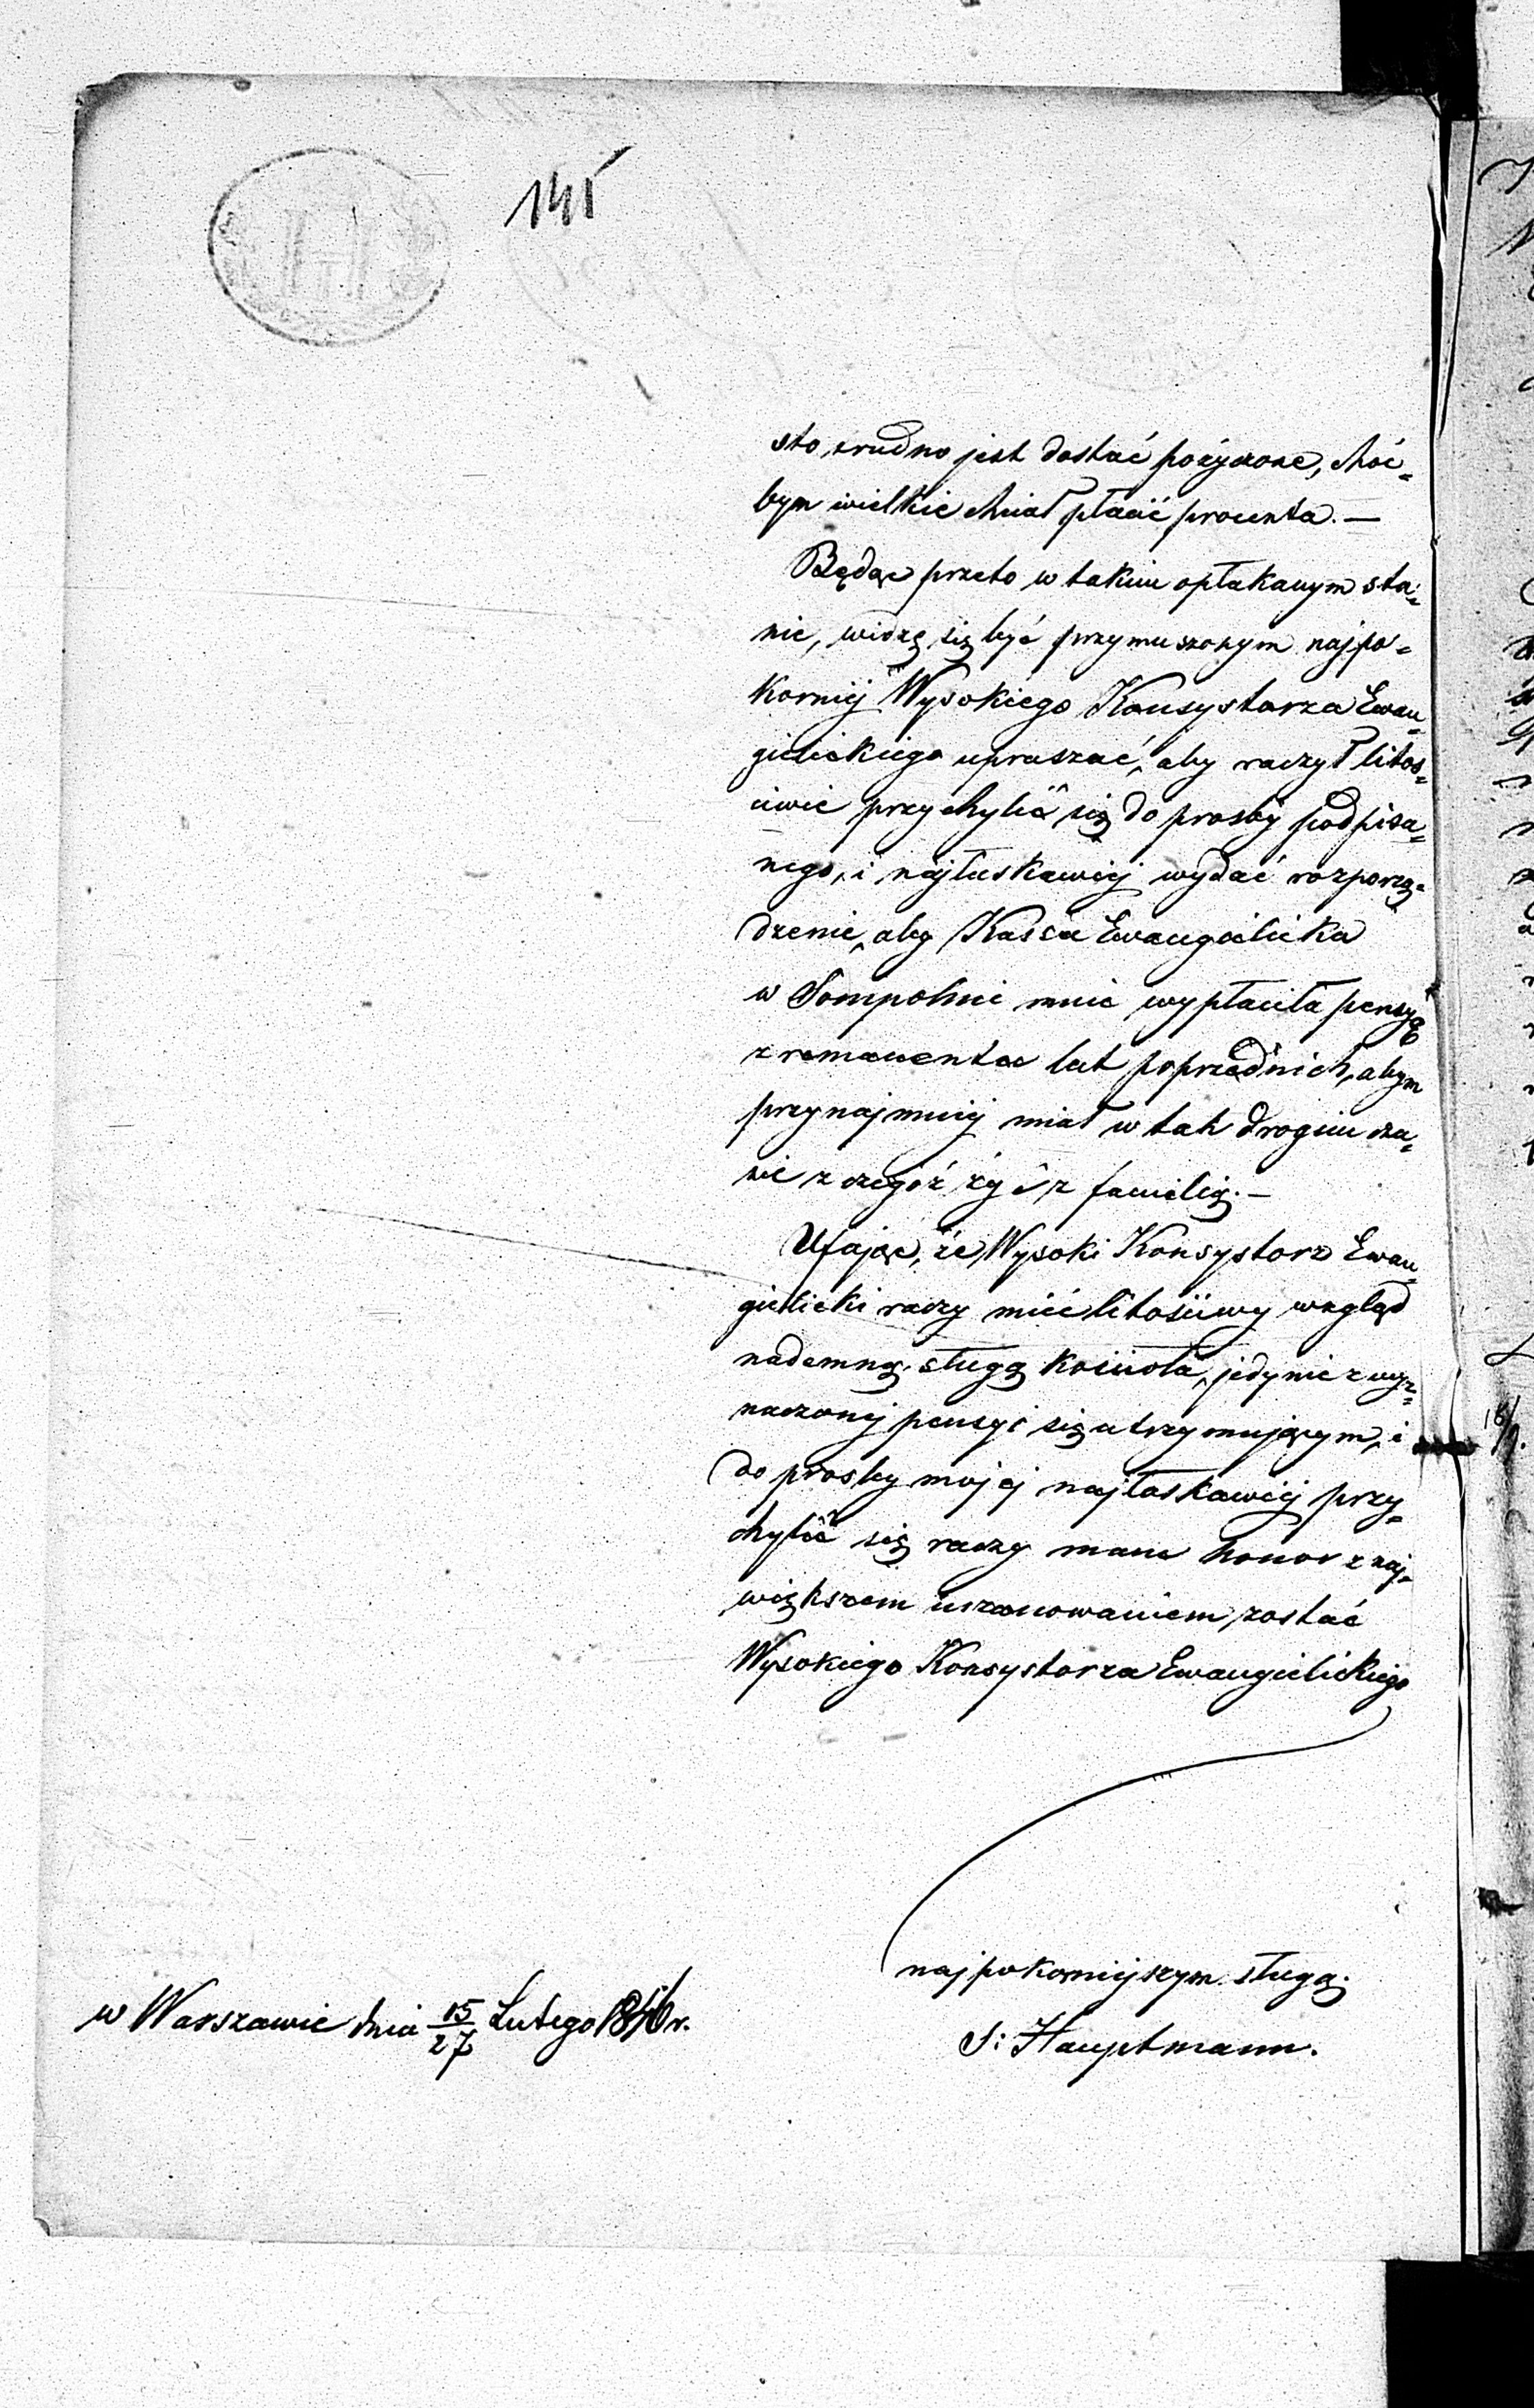 141
sto, trudno jest dostać pożyczone, choć-
bym wielkie chciał płacić procenta. —
Będąc przeto w takim opłakanym sta-
nie, widzę się być przymuszonym najpo-
korniéj Wysokiego Konsystorza Ewan-
gielickiego upraszać, aby raczył litoś-
ciwie przychylić się do prośby podpisa-
nego, i najłaskawiéj wydać rozporzą-
dzenie, aby Kassa Ewangielicka
w Sompolnie mnie wypłaciła pensyą
z remanentu lat poprzednich, abym
przynajmniéj miał w tak drogim cza-
sie z czegóż żyć z familią. —
Ufając, że Wysoki Konsystorz Ewan-
gielicki raczy mieć litościwy wzgląd
nademną sługą kościoła, jedynie z wyz-
naczonéj pensyi się utrzymującym, i
do prośby mojéj najłaskawiéj przy-
chylić się raczy mam honor z naj-
większem uszanowaniem zostać
Wysokiego Konsystorza Ewangielickiego
najpokorniejszym sługą.
S: Hauptmann.
w Warszawie dnia 15/27 Lutego r.